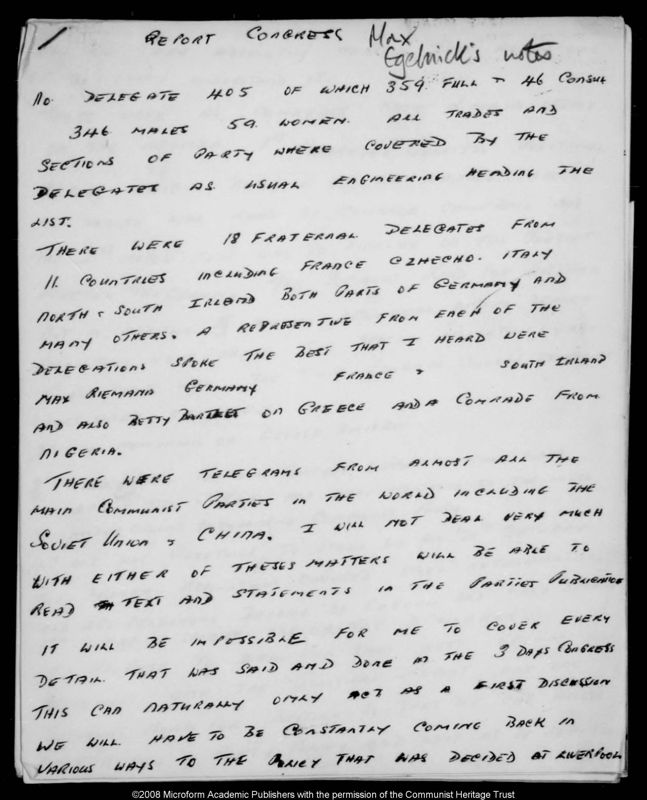 1
REPORT CONGRESS Max
Egelnick's notes
NO. DELEGATE 405 OF WHICH 359. FULL & 46 CONSUL
346 MALES 59. WOMEN. ALL TRADES AND
SECTIONS OF PARTY WHERE COVERED BY THE
DELEGATES AS USUAL ENGINEERING HEADING THE
LIST.
THERE WERE 18 FRATERNAL DELEGATES FROM
11. COUNTRIES INCLUDING FRANCE CZHECHO. ITALY
NORTH & SOUTH IRLAND BOTH PARTS OF GERMANY AND
MANY OTHERS. A REPRESENTIVE FROM EACH OF THE
DELEGATIONS SPOKE THE BEST THAT I HEARD WERE
MAX RIEMANN GERMANY FRANCE & SOUTH IRLAND
AND ALSO BETTY ON GREECE AND A COMRADE FROM
NIGERIA.
THERE WERE TELEGRAMS FROM ALMOST ALL THE
MAIN COMMUNIST PARTIES IN THE WORLD INCLUDING THE
SOVIET UNION & CHINA. I WILL NOT DEAL VERY MUCH
WITH EITHER OF THESES MATTERS WILL BE ABLE TO
READ TEXT AND STATEMENTS IN THE PARTIES PUBLICATION
IT WILL BE IMPOSSIBLE FOR ME TO COVER EVERY
DETAIL THAT WAS SAID AND DONE IN THE 3 DAYS CONGRESS
THIS CAN NATURALLY ONLY ACT AS A FIRST DISCUSSION
WE WILL HAVE TO BE CONSTANTLY COMING BACK IN
VARIOUS WAYS TO THE POLICY THAT WAS DECIDED AT LIVERPOOL
©2008 Microform Academic Publishers with the permission of the Communist Heritage Trust